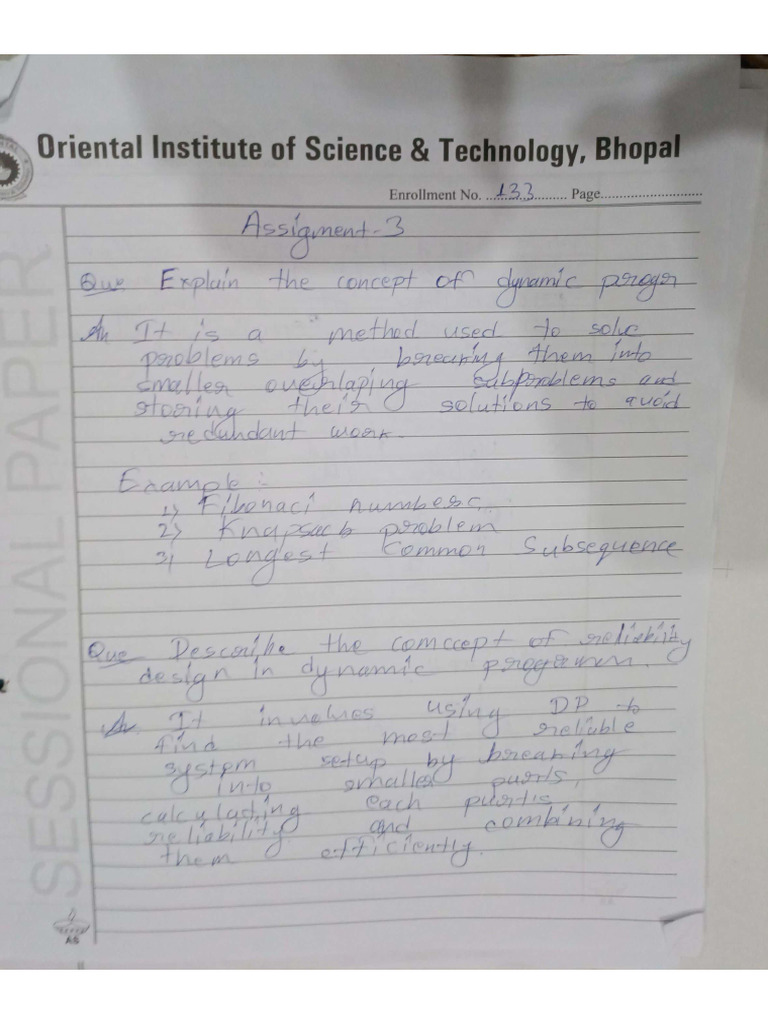 Oriental Institute of Science & Technology, Bhopal
Enrollment No. ...133.......... Page...........................
Assigment-3
Que Explain the concept of dynamic progr
An It is a method used to solc
problems by breaking them into
smaller overlaping subproblems and
storing their solutions to avoid
redundant work.
Example :-
1) Fibonaci numbers
2) Knapsack problem
3) Longest Common Subsequence
Que Describe the comccept of reliability
design in dynamic progamm.
An It involves using DP to
find the most reliable
system setup by breaking
into smaller parts,
calculading each partis
reliability and combining
them efficiently.
SESSIONAL PAPER
AS